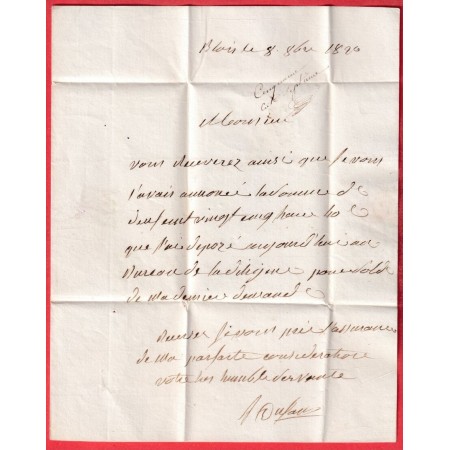 Blois le 8 8bre 1820
Monsieur
vous recevrez ainsi que je vous
l'avais annoncé la somme de
deux cent vingt cinq francs
que j'ai deposé aujourd'hui au
Bureau de la diligence pour solde
de ma derniere demande
recevez je vous prie l'assurance
de ma parfaite consideration
votre tres humble servante